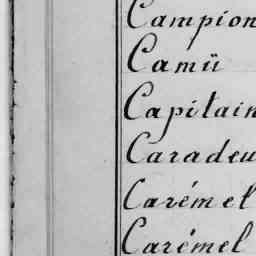 Campion
Camü
Capitain
Caradeu
Carémel
Carémel